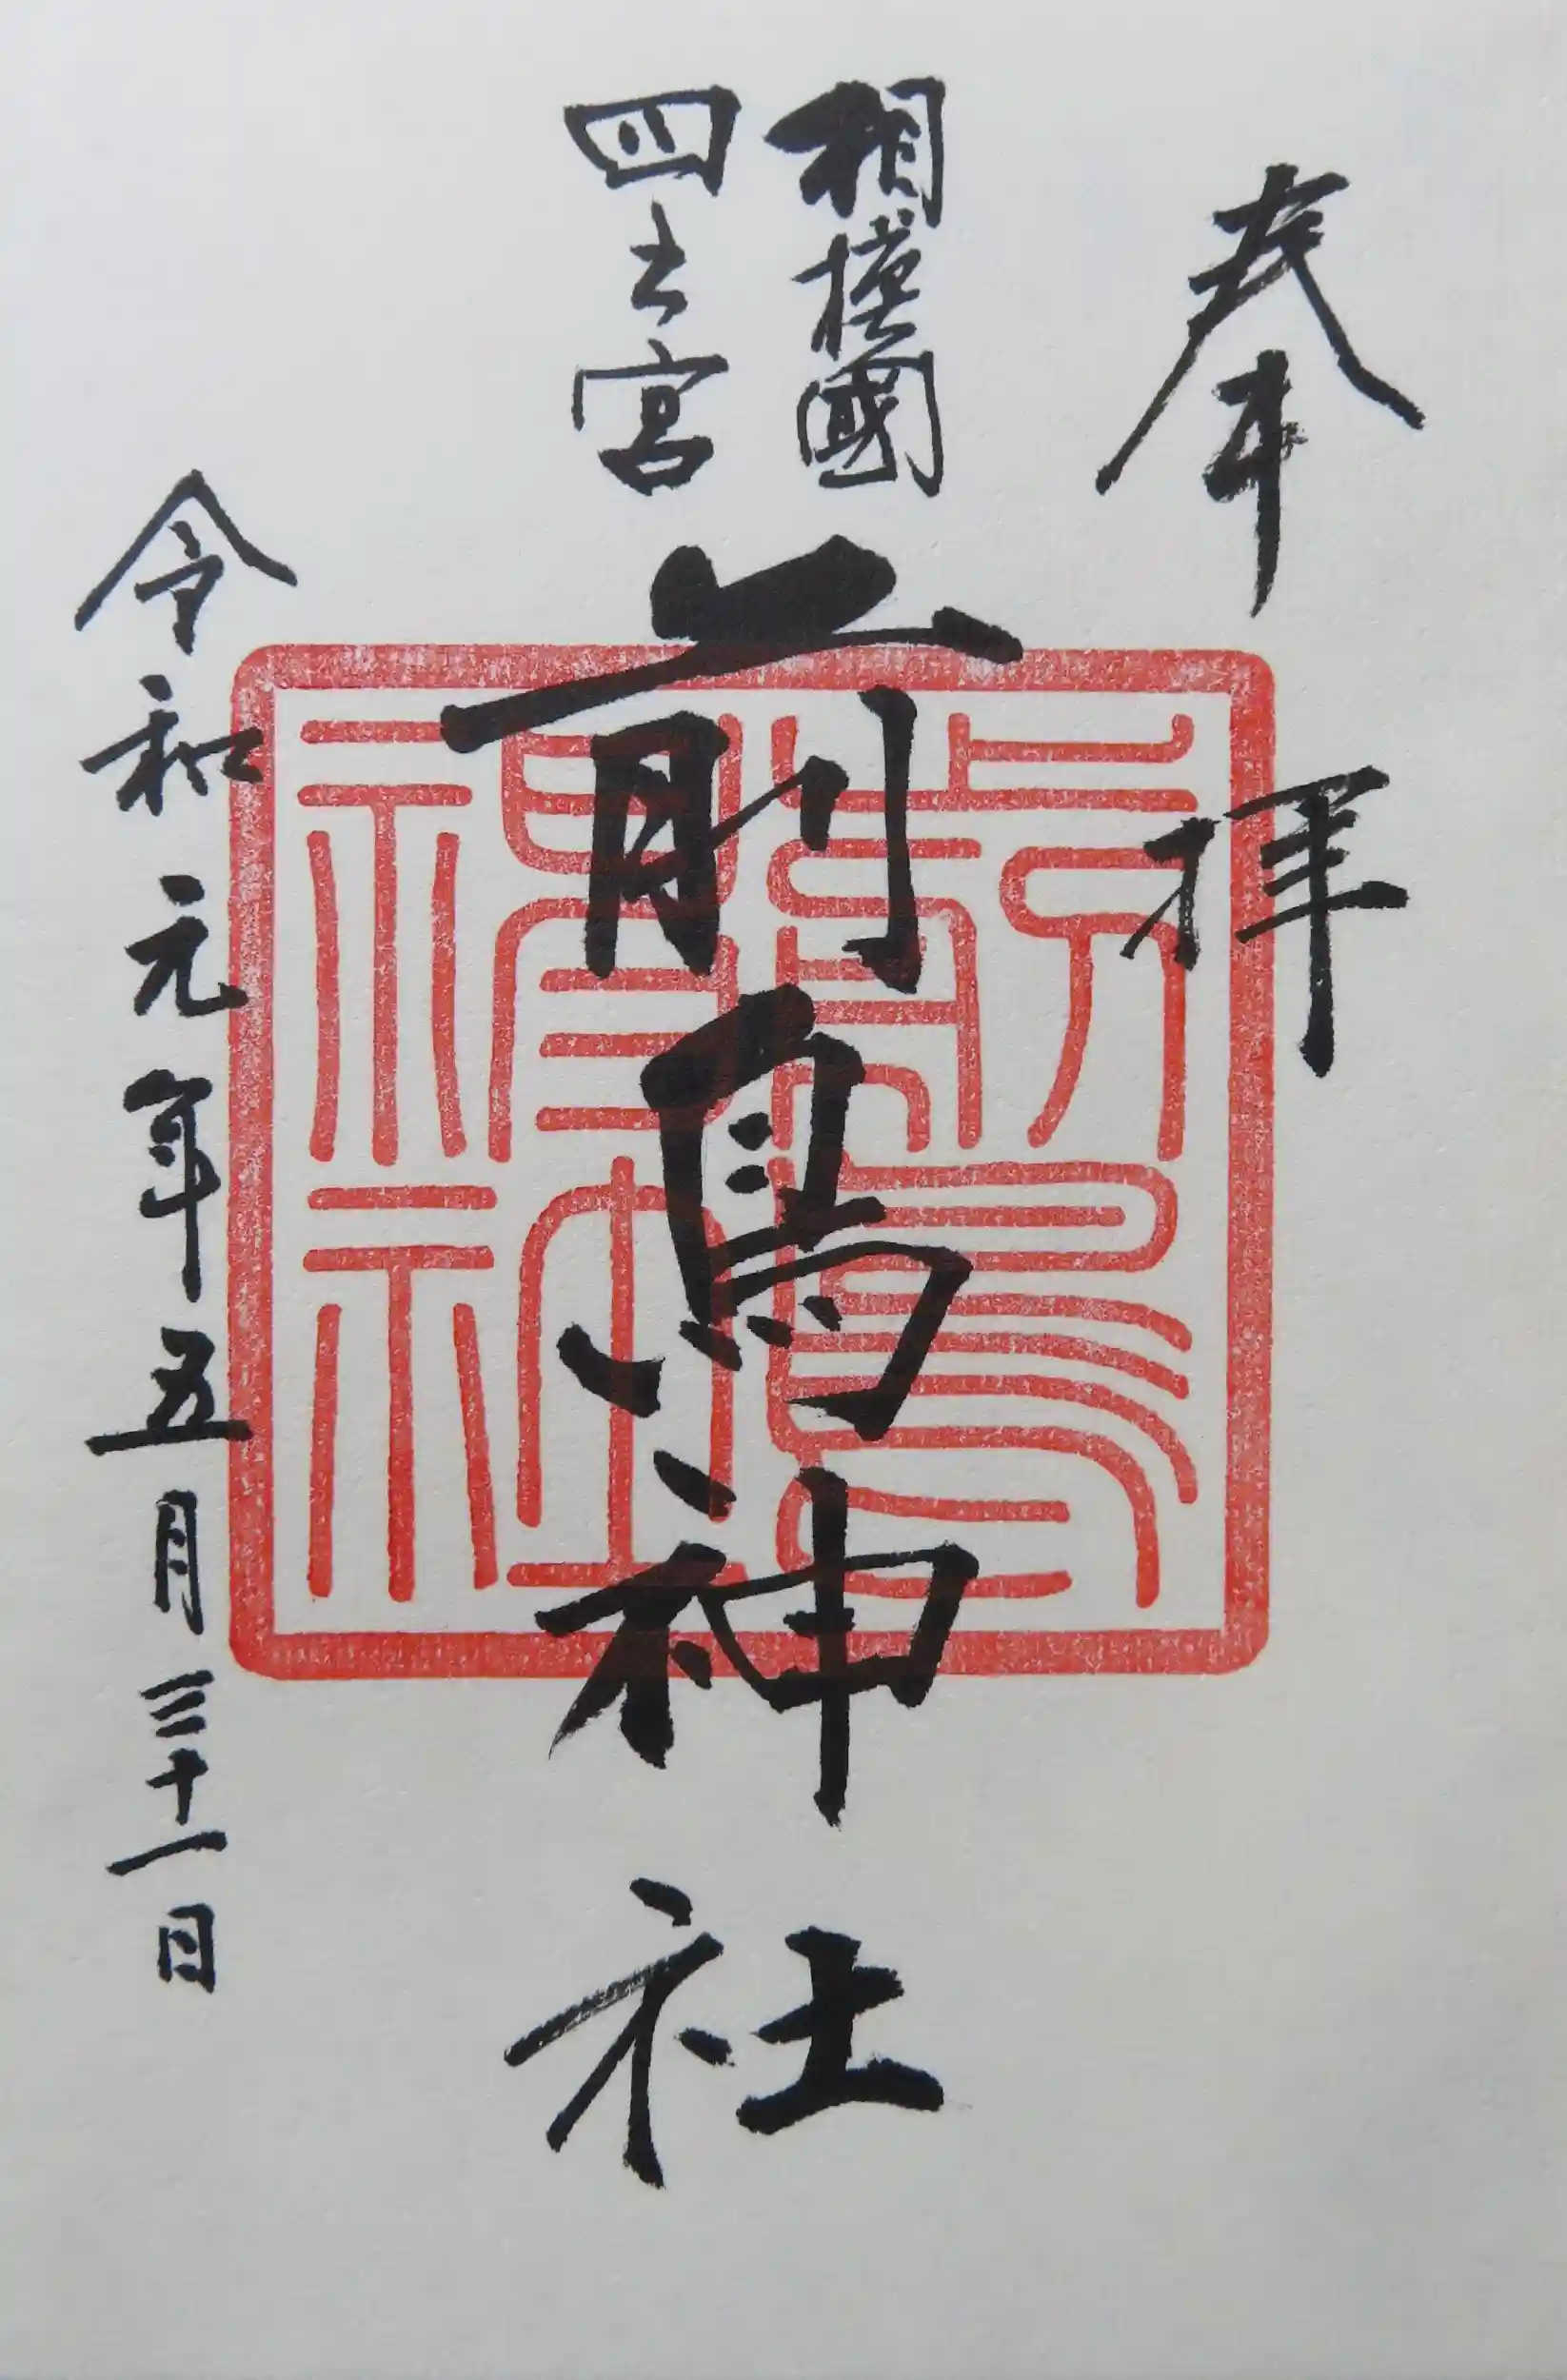 奉拝
相模國
四之宮
前鳥神社
令和元年五月三十一日
前鳥神社